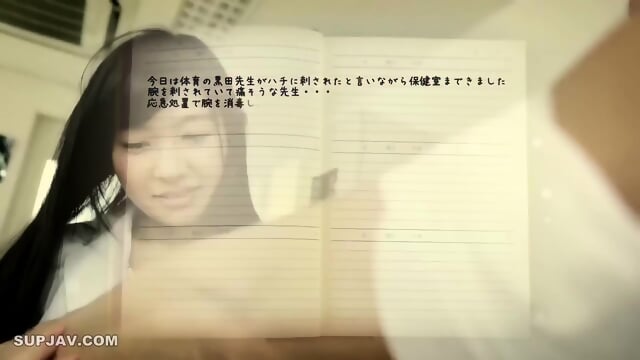 今日は体育の黒田先生がハチに刺されたと言いながら保健室まできました
腕を刺されていて痛そうな先生・・・
応急処置で腕を消毒し
SUPJAV.COM